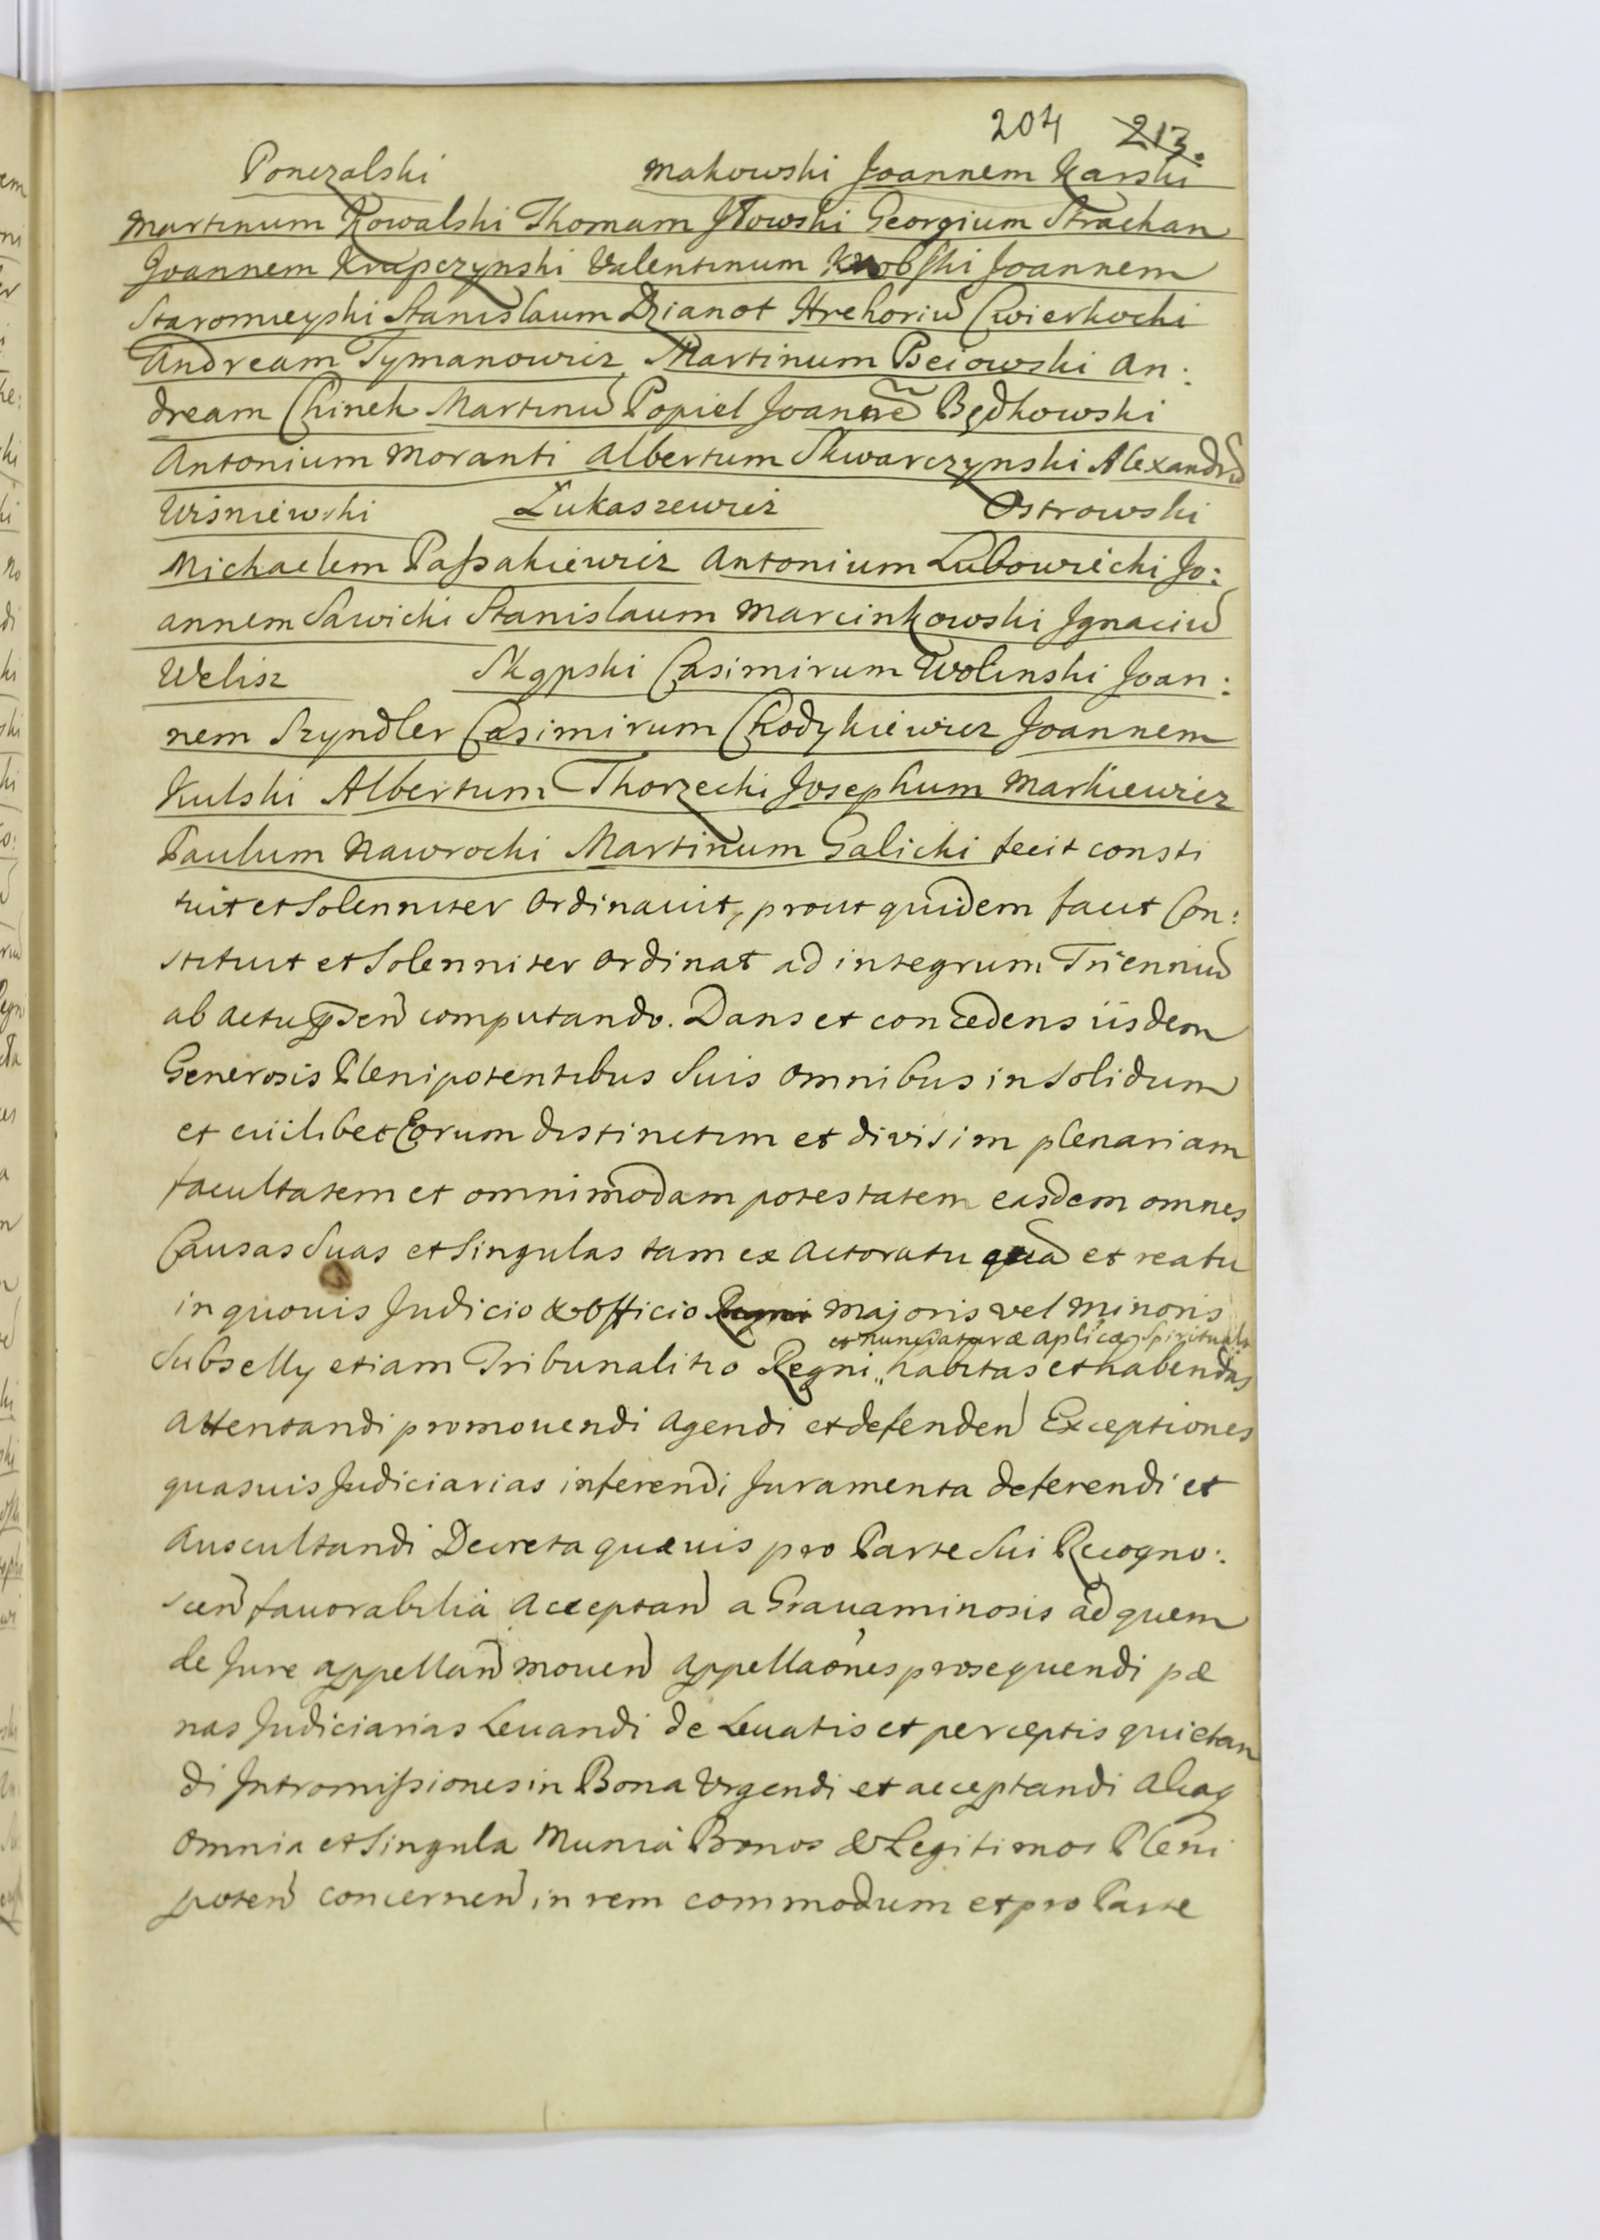 204 213.
Ponczalski makowski Joannem Karski
Martinum Kowalski Thomam Jłowski Georgium Strachan
Joannem Krapczynski Valentinum Joannem
Staromieyski Stanislaum Dzianot Hrehoriu Cwierkocki
Andream Tymanowicz Martinum Bęciowski An:
dream Chinek Martinu Popiel Joanne Będkowski
Antonium Moranti Albertum Skwarczynski Alexandru
Wisniewski Łukaszewicz Ostrowski
Michaelem Paszakiewicz Antonium Lubowiecki Jo:
annem Sawicki Stanislaum Marcinkowski Jgnaciu
Welisz Skąpski Casimirum Wolinski Joan:
nem Szyndler Casimirum Chodykiewicz Joannem
Kulski Albertum Thorzecki Josephum Markiewicz
Paulum Nawrocki Martinum Galicki fecit consti
tuit et Solenniter Ordinavit, prout quidem facit Con:
stituit et Solenniter Ordinat ad integrum Trienniu
ab actu computando. Dans et concedens iisdem
Generosis Plenipotentibus Suis Omnibus in Solidum
et cuilibet Eorum distinctim et divisim plenariam
facultatem et omnimodam potestatem easdem omnes
Causas Suas et Singulas tam ex Actoratu qua et reatu
in quovis Judicio & Officio Regni Majoris vel Minoris
et nunciaturæ aplicæ Spirituals
Subselly etiam Tribunalitio Regni,, habitas et habendas
Attentandi promouendi Agendi et defenden Exceptiones
quasuis Judiciarias inferendi Juramenta deferendi et
Auscultandi Decreta quævis pro Parte Sui Recogno:
scen favorabilia Acceptan a Gravaminosis ad quem
de Jure appellan moven Appellaones prosequendi pæ
nas Judiciarias Levandi de Levatis et perceptis quietan
di Jntromissiones in Bona Urgendi et acceptandi aliaq
Omnia et Singula Munia Bonos & Legitimos Pleni
poten concernen in rem commodum et pro Parte